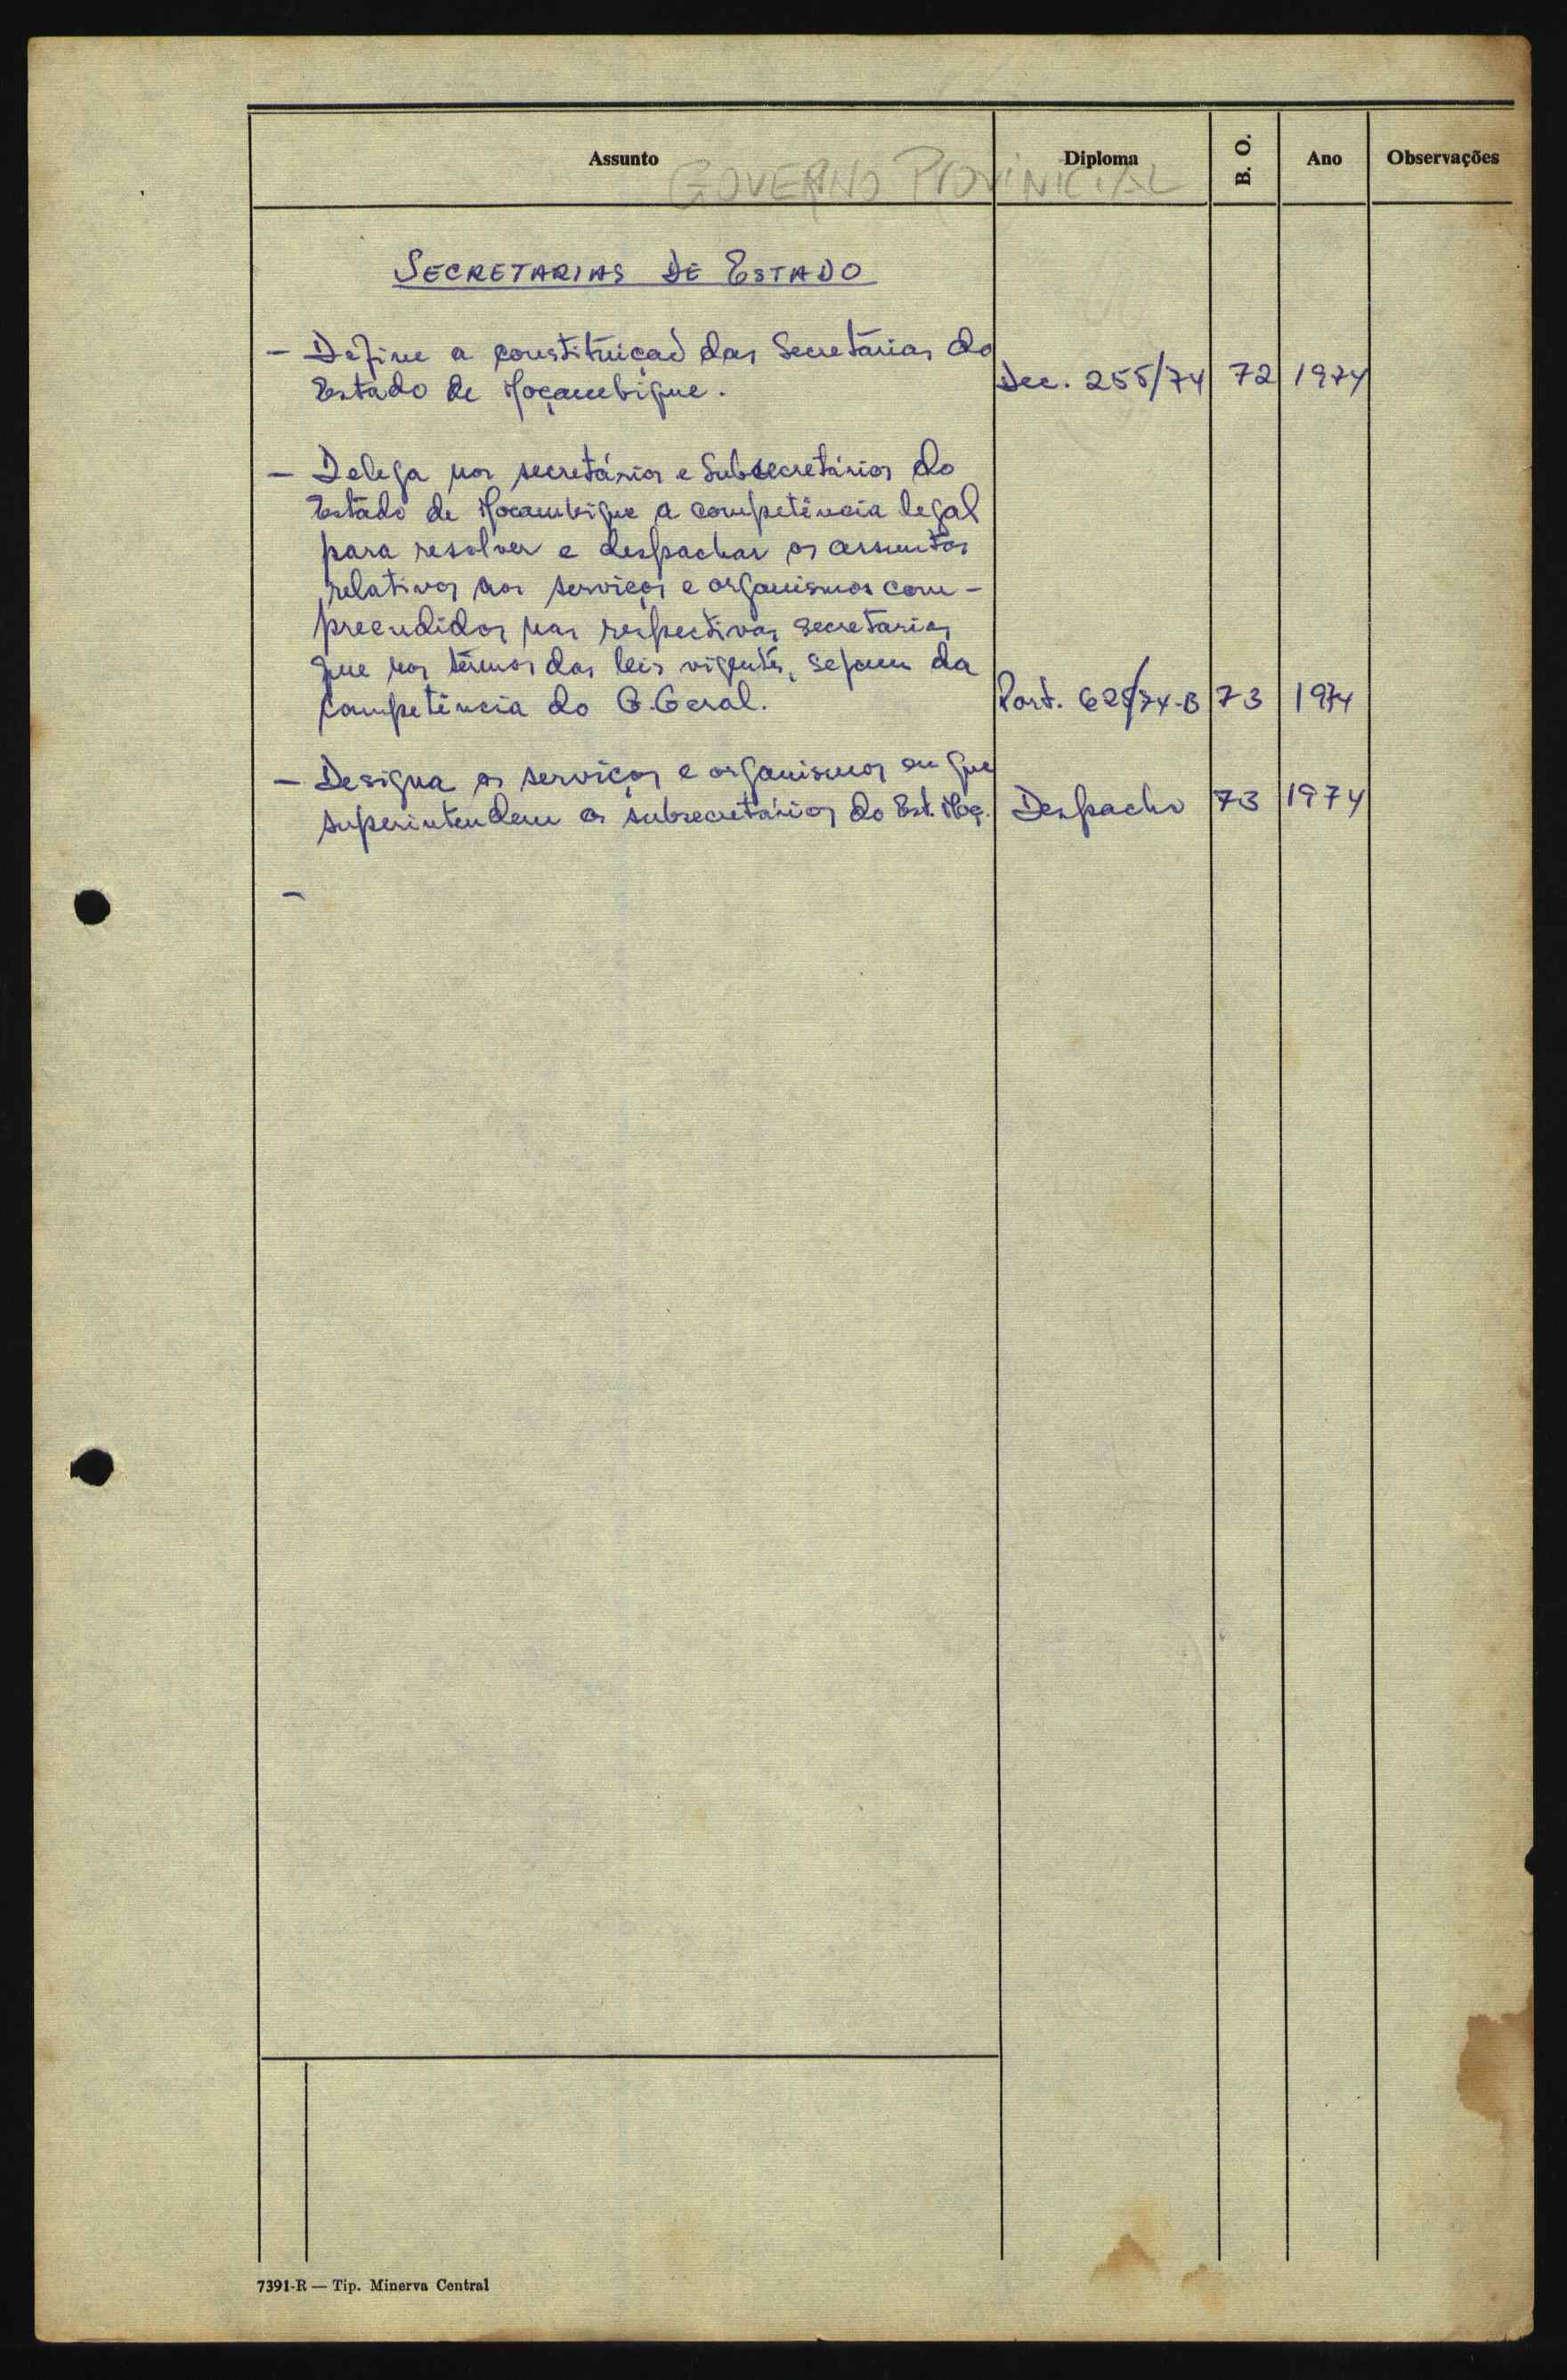 Assunto Diploma B. O. Ano Observações
GOVERNO PROVINICIAL
SECRETARIAS DE ESTADO
- Define a constituição das Secretarias do
Estado de Moçambique. Dec. 255/74 72 1974
- Delega nos secretários e Subsecretários do
Estado de Moçambique a competência legal
para resolver e despachar os assuntos
relativos aos serviços e organismos com-
preendidos nas respectivas secretarias
que nos têrmos das leis vigentes, sejam da
competência do G. Geral. Port. /74-B 73 1974
- Designa os serviços e organismos em que
superintendem os subsecretários do Est. Moç. Despacho 73 1974
-
7391-R — Tip. Minerva Central